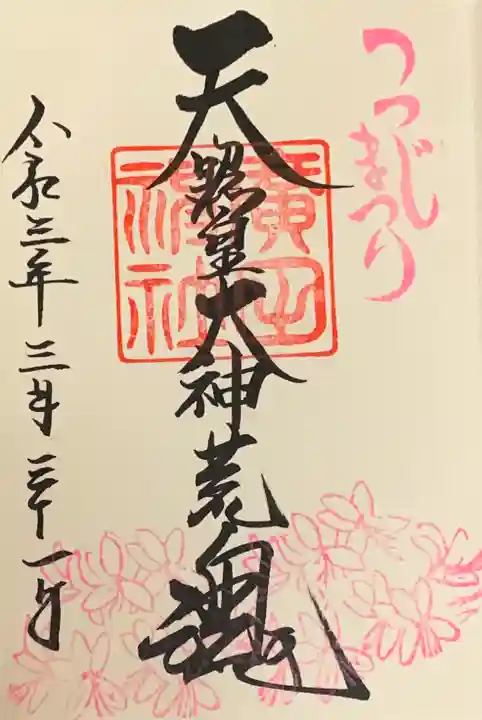 つつじ
まつり
天照皇大神荒魂
廣田神社
令和三年三月三十一日